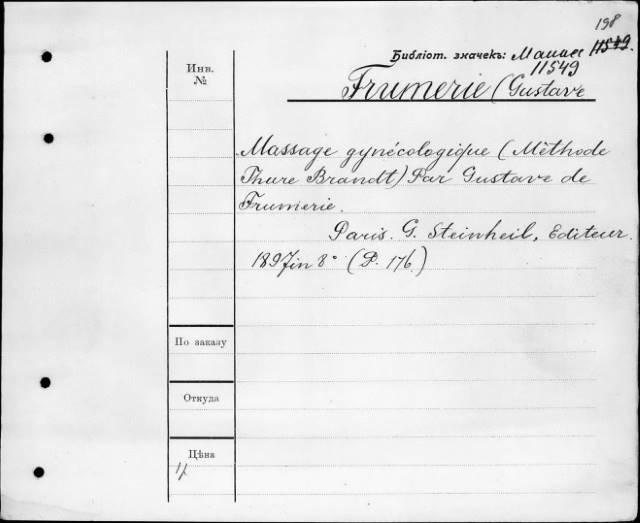 198
Инв.
№
Библіот. значекъ:
11549.
11549
Frumerie (Gustave
Massage gynécologique (Méthode
Thure Brandt) Par Gustave de
Frumerie.
Paris. G. Steinheil, Editeur.
1897 in 8° (P. 176.)
По заказу
Откуда
Цѣна